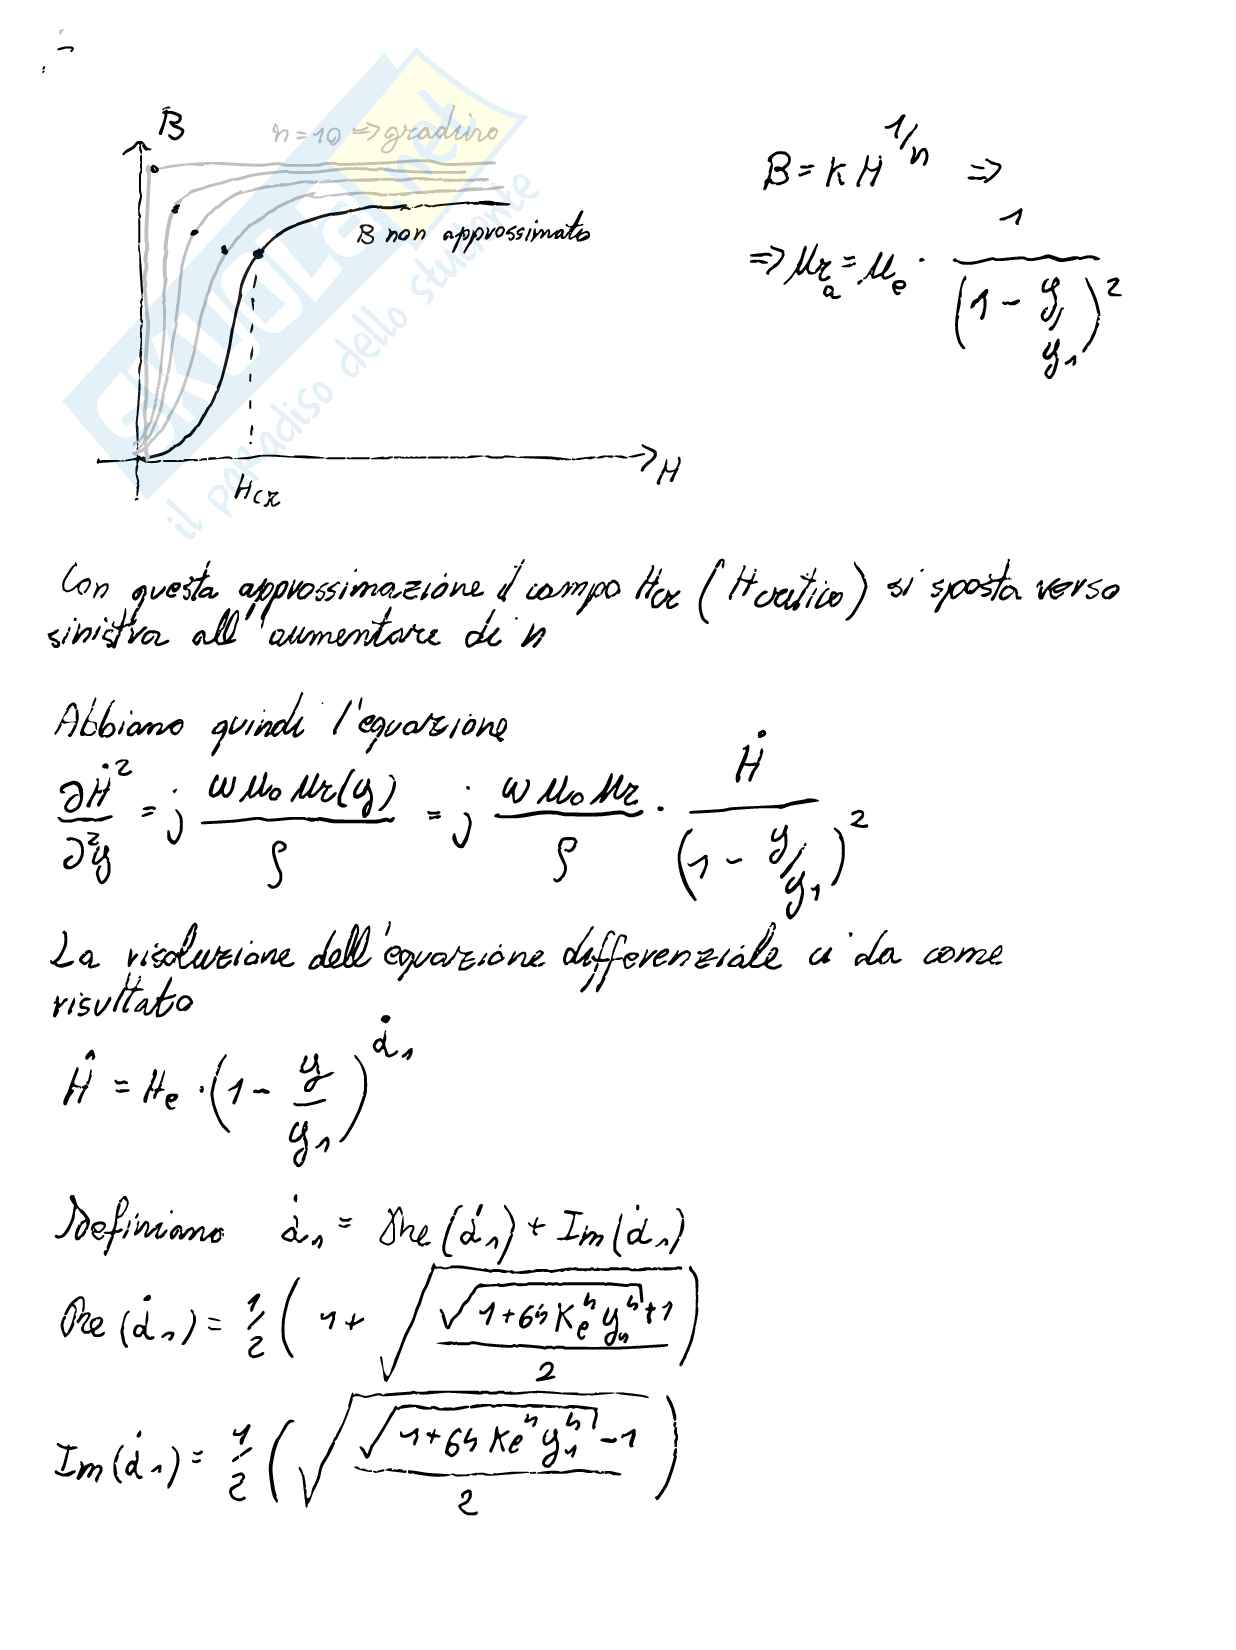 B
n=10 => gradino
B non approssimato
H
Hcr
B = K H^{1/n} =>
=> μr_a = μ_e · 1 / (1 - y/y1)^2
Con questa approssimazione il campo Hcr (Hcritico) si sposta verso
sinistra all'aumentare di n
Abbiamo quindi l'equazione
∂Ḣ^2 / ∂^2y = j ωμ0 μr(y) / ρ = j ωμ0 μr / ρ · Ḣ / (1 - y/y1)^2
La risoluzione dell'equazione differenziale ci da come
risultato
Ĥ = He · (1 - y/y1)^{α̇1}
Definiamo α̇1 = Re(α̇1) + Im(α̇1)
Re(α̇1) = 1/2 ( 1 + √( (√(1+64 Ke^4 y1^4) + 1) / 2 ) )
Im(α̇1) = 1/2 ( √( (√(1+64 Ke^4 y1^4) - 1) / 2 ) )
SKUOLA.net
il paradiso dello studente